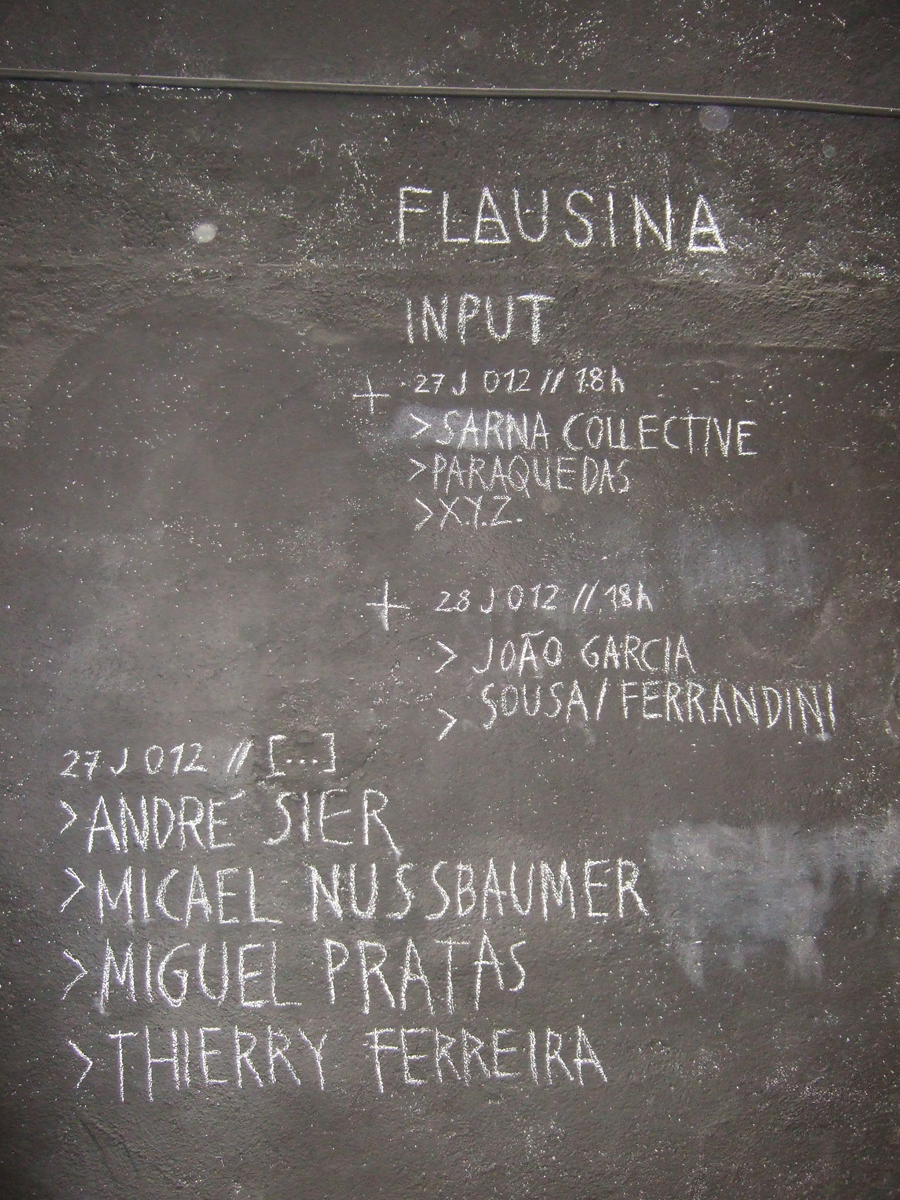 FLAUSINA
INPUT
+ 27 J 012 // 18h
>SARNA COLLECTIVE
>PARAQUEDAS
>X.Y.Z.
+ 28 J 012 // 18h
> JOÃO GARCIA
> SOUSA/FERRANDINI
27 J 012 // [...]
>ANDRÉ SIER
>MICAEL NUSSBAUMER
>MIGUEL PRATAS
>THIERRY FERREIRA